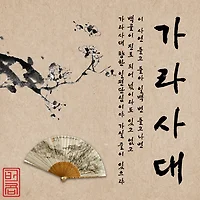 가라사대
이 사연 듣고 듣자 일백 번 듣고 나면
백골이 진토 되어 넋이라도 있고 없고
가라사대 향한 일편단심이야 가실 줄이 있으랴